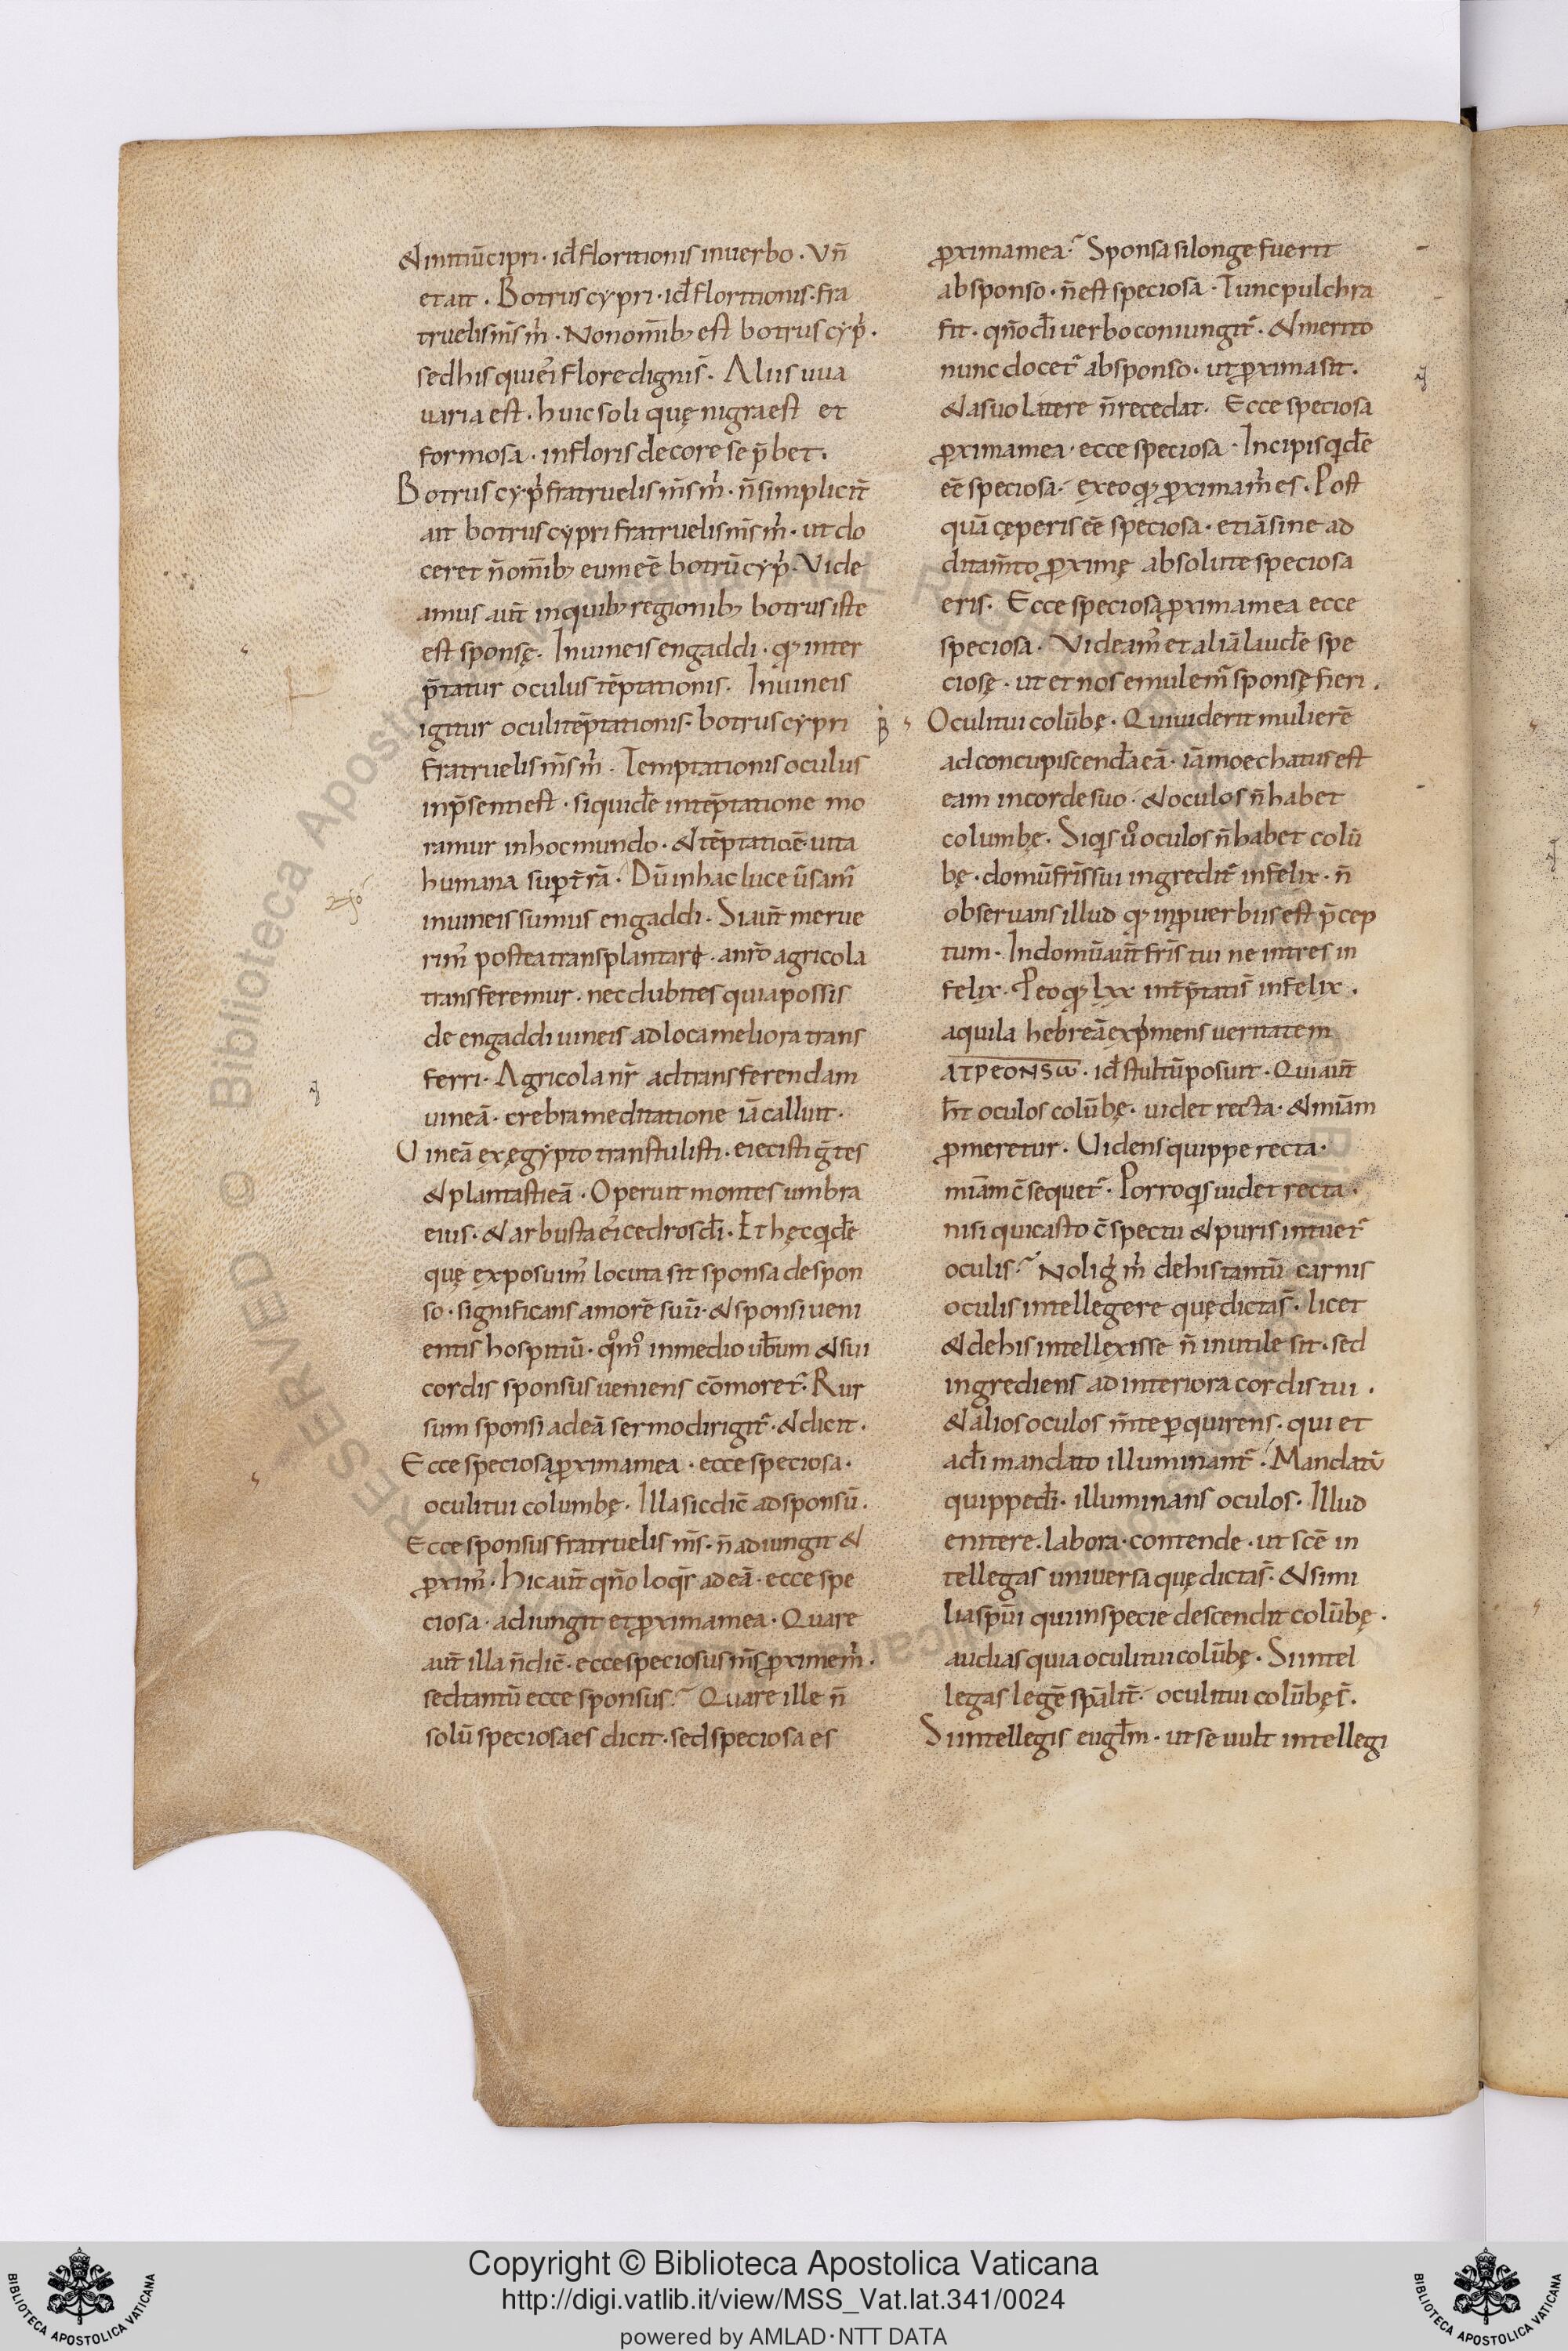 &initiū cipri · id̄ floritionis in uerbo · Vn̄
et ait . Botrus cypri · id̄ floritionis · fra
truelis m̄s m̄ · Non om̄ib; est botrus cyp̄ ·
sed his qui eī flore digni s̄ · Aliis uua
uaria est · huic soli quę nigra est et
formosa · in floris decore se p̄bet .
Botrus cyp̄ fratruelis m̄s m̄ · n̄ simplicit̄
ait botrus cypri fratruelis m̄s m̄ · ut do
ceret n̄ om̄ib; eum eē botrū cyp̄ · Vide
amus aut̄ in quib; regionib; botrus iste
est sponsę · In uineis engaddi · qđ inter
p̄tatur oculus tēptationis · In uineis
igitur oculi tēptationis · botrus cypri
fratruelis m̄s m̄ · Temptationis oculus
in p̄senti est · siquidē in tēptatione mo
ramur in hoc mundo · & tēptatio ē · uita
humana sup t̄rā · Dū in hac luce ūsam̄
in uineis sumus engaddi · Si aut̄ merue
rim̄ postea transplantari · a nr̄o agricola
transferemur · nec dubites quia possis
de engaddi uineis ad loca meliora trans
ferri · Agricola nr̄ ad transferendam
uineā · crebra meditatione iā calluit ·
Vineā ex ęgypto transtulisti · eiecisti ḡtes
& plantasti eā · Operuit montes umbra
eius · & arbusta eī cedros dī · Et hęc qidē
quę exposuim̄ locuta sit sponsa de spon
so · significans amorē suū · & sponsi ueni
entis hospitiū · qm̊ in medio ub̄um & sui
cordis sponsus ueniens cōmoret̄ · Rur
sum sponsi ad eā sermo dirigit̄ · & dicit ·
Ecce speciosa ꝓxima mea · ecce speciosa ·
oculi tui columbę · Illa sic dic̄ ad sponsū .
Ecce sponsus fratruelis m̄s · n̄ adiungit &
ꝓxim̄ · Hic aut̄ qn̄o loqr̄ ad eā · ecce spe
ciosa · adiungit et ꝓxima mea · Quare
aut̄ illa n̄ dic̄ · ecce speciosus m̄s ꝓxime m̄ ·
sed tantū ecce sponsus · Quare ille n̄
solū speciosa es dicit · sed speciosa es
ꝓxima mea · Sponsa si longe fuerit
ab sponso · n̄ est speciosa · Tunc pulchra
fit · qn̄o dī uerbo coniungit̄ · & merito
nunc docet̄ ab sponso · ut ꝓxima sit ·
& a suo latere n̄ recedat · Ecce speciosa
ꝓxima mea · ecce speciosa · Incipis qidē
eē speciosa · ex eo qđ ꝓxima m̄ es · Post
quā cęperis eē speciosa · etiā sine ad
ditam̄to ꝓximę absolute speciosa
eris · Ecce speciosa ꝓxima mea ecce
speciosa · Videam̄ et aliā laudē spe
ciosę · ut et nos emulem̄ sponsę fieri .
Oculi tui colūbę · Qui uiderit mulierē
ad concupiscendā eā · iā moechatus est
eam in corde suo · & oculos n̄ habet
columbę · Siqis ů oculos n̄ habet colū
bę · domū fr̄is sui ingredit̄ infelix · n̄
obseruans illud qđ in ꝓuerbiis est p̄cep
tum · In domū aut̄ fr̄is tui ne intres in
felix · Peo qđ lxx int̄p̄tati s̄ infelix ·
aquila hebreā expmens ueritatem
ΑΤΡΕΟΝSω · id̄ stultū posuit · Qui aut̄
h̄t oculos colūbę · uidet recta · & mīam
ꝓmeretur · Uidens quippe recta ·
mīam c̄sequet̄ · Porro qis uidet recta ·
nisi qui casto c̄spectu & puris intuet̄
oculis · Noli ǧ m̄ de his tantū carnis
oculis intellegere quę dicta s̄ · licet
& de his intellexisse n̄ inutile sit · sed
ingrediens ad interiora cordis tui ·
& alios oculos m̄te perquirens · qui et
a dī mandato illuminant̄ · Mandatū
quippe dī · illuminans oculos · Illud
enitere · labora · contende · ut scē in
tellegas uniuersa quę dicta s̄ · & simi
lia spūi qui in specie descendit colūbę ·
audias quia oculi tui colūbę · Si intel
legas legē spāliter · oculi tui colūbę s̄ .
Si intellegis eugl̄m · ut se uult intellegi
Copyright © Biblioteca Apostolica Vaticana
http://digi.vatlib.it/view/MSS_Vat.lat.341/0024
powered by AMLAD·NTT DATA
BIBLIOTECA APOSTOLICA VATICANA
BIBLIOTECA APOSTOLICA VATICANA